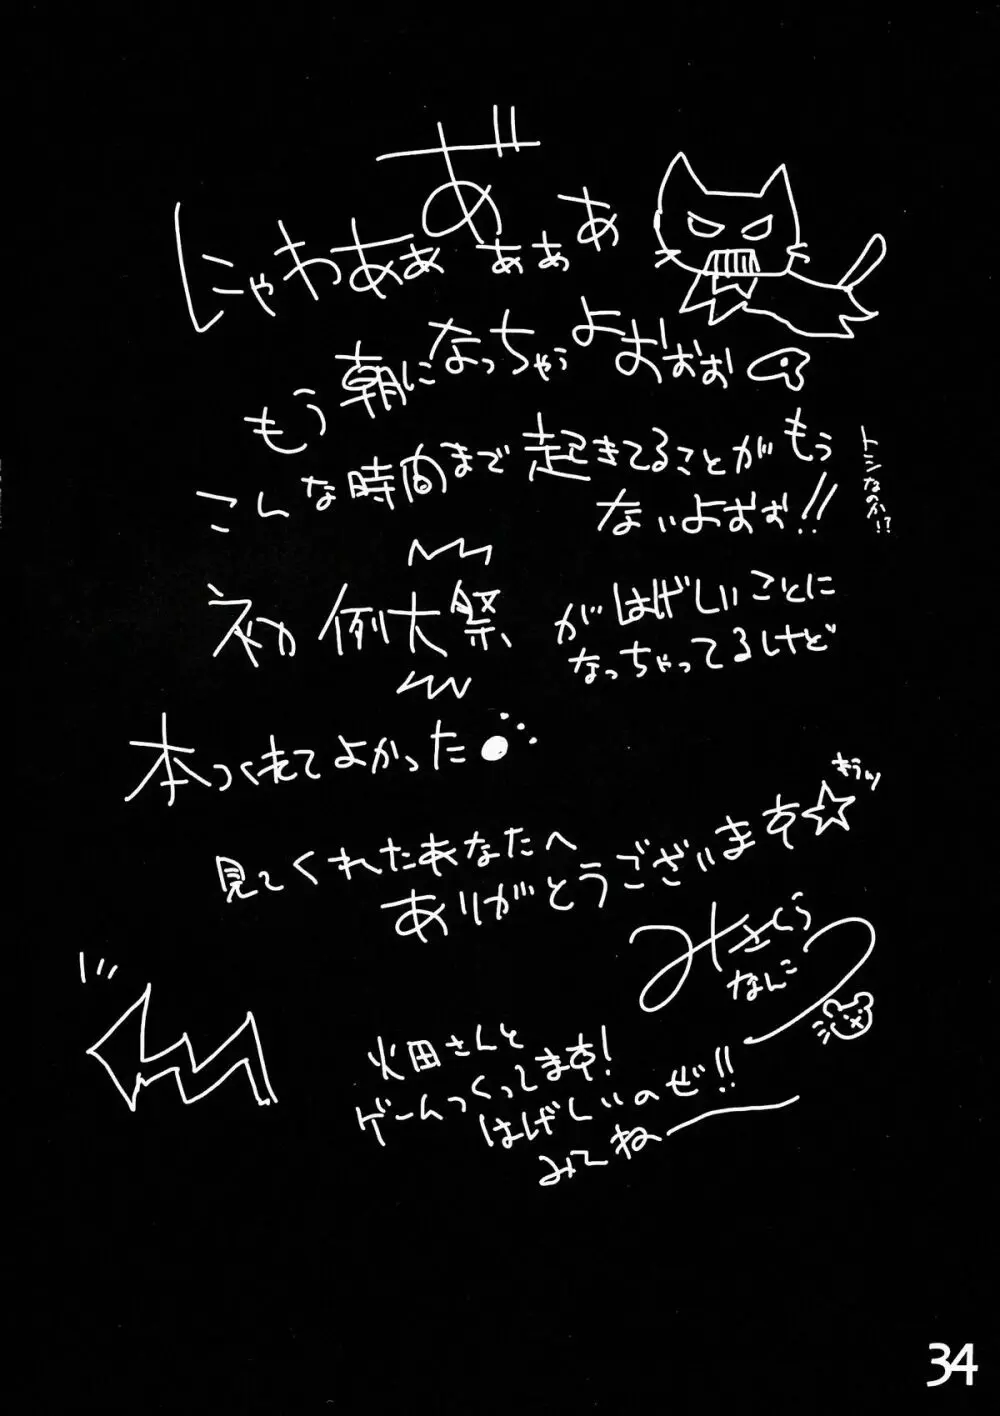 にゃわあぁあ゛ぁぁあ
もう朝になっちゃうよおぉぉ
こんな時間まで起きてることがもう
ないよぉぉ!!
トシなのか!?
初例大祭
がはげしいことに
なっちゃってるけど
本つくれてよかった
見てくれたあなたへ
ありがとうございます☆
キラッ
みさくら
なんこつ
火田さんと
ゲームつくってます!
はげしいのぜ!!
みてねー
34